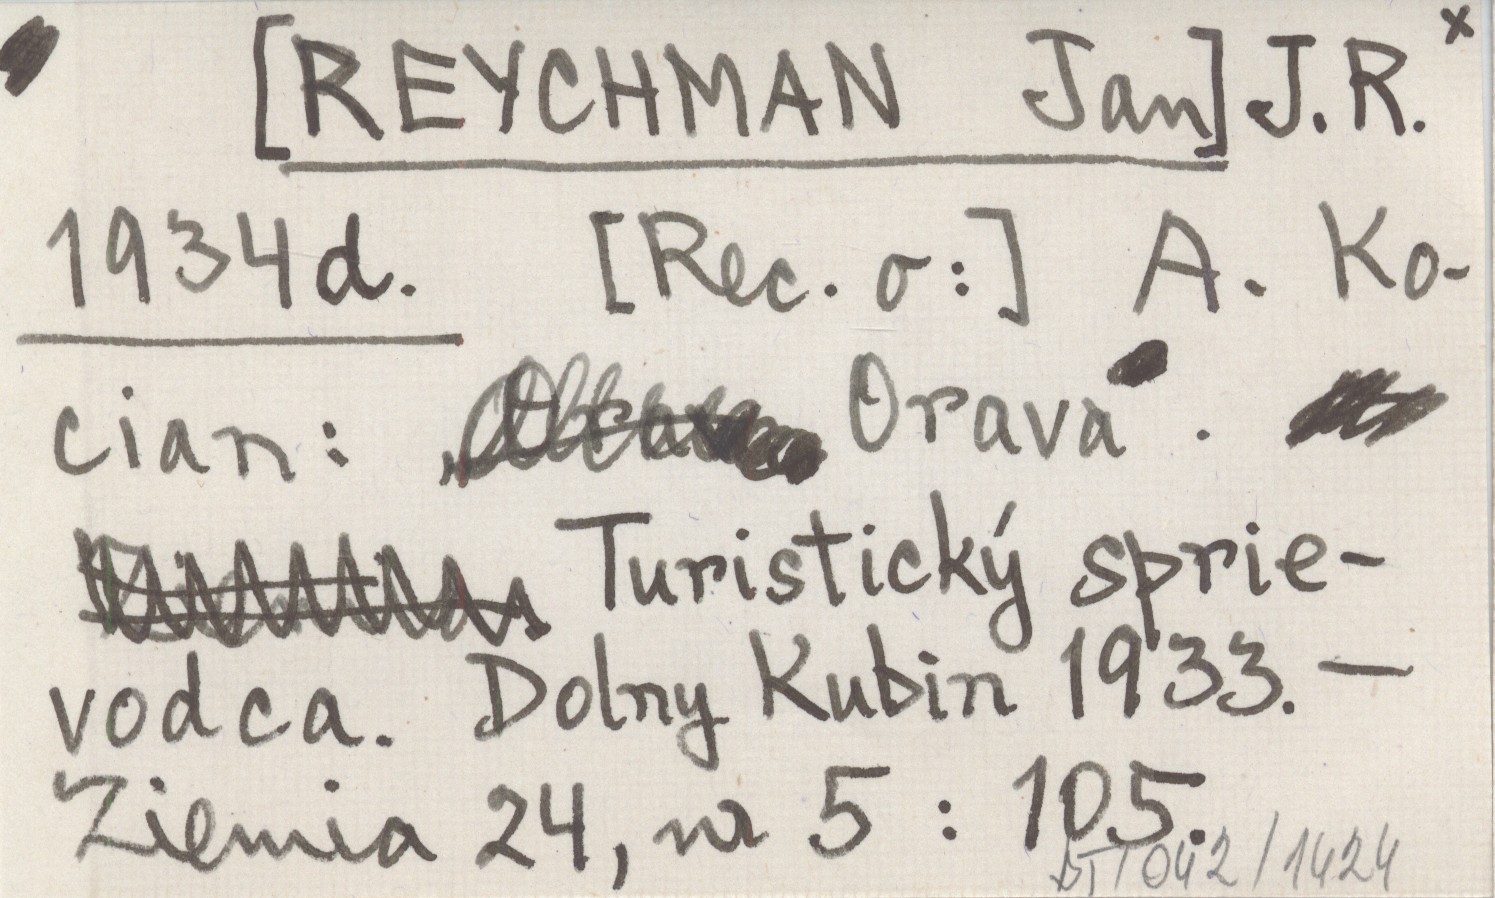 [REYCHMAN Jan] J.R. x
1934d. [Rec. o:] A. Ko-
cian: Orava .
Turistický sprie-
vodca. Dolny Kubin 1933. —
Ziemia 24, nr 5 : 105.
/042/1424